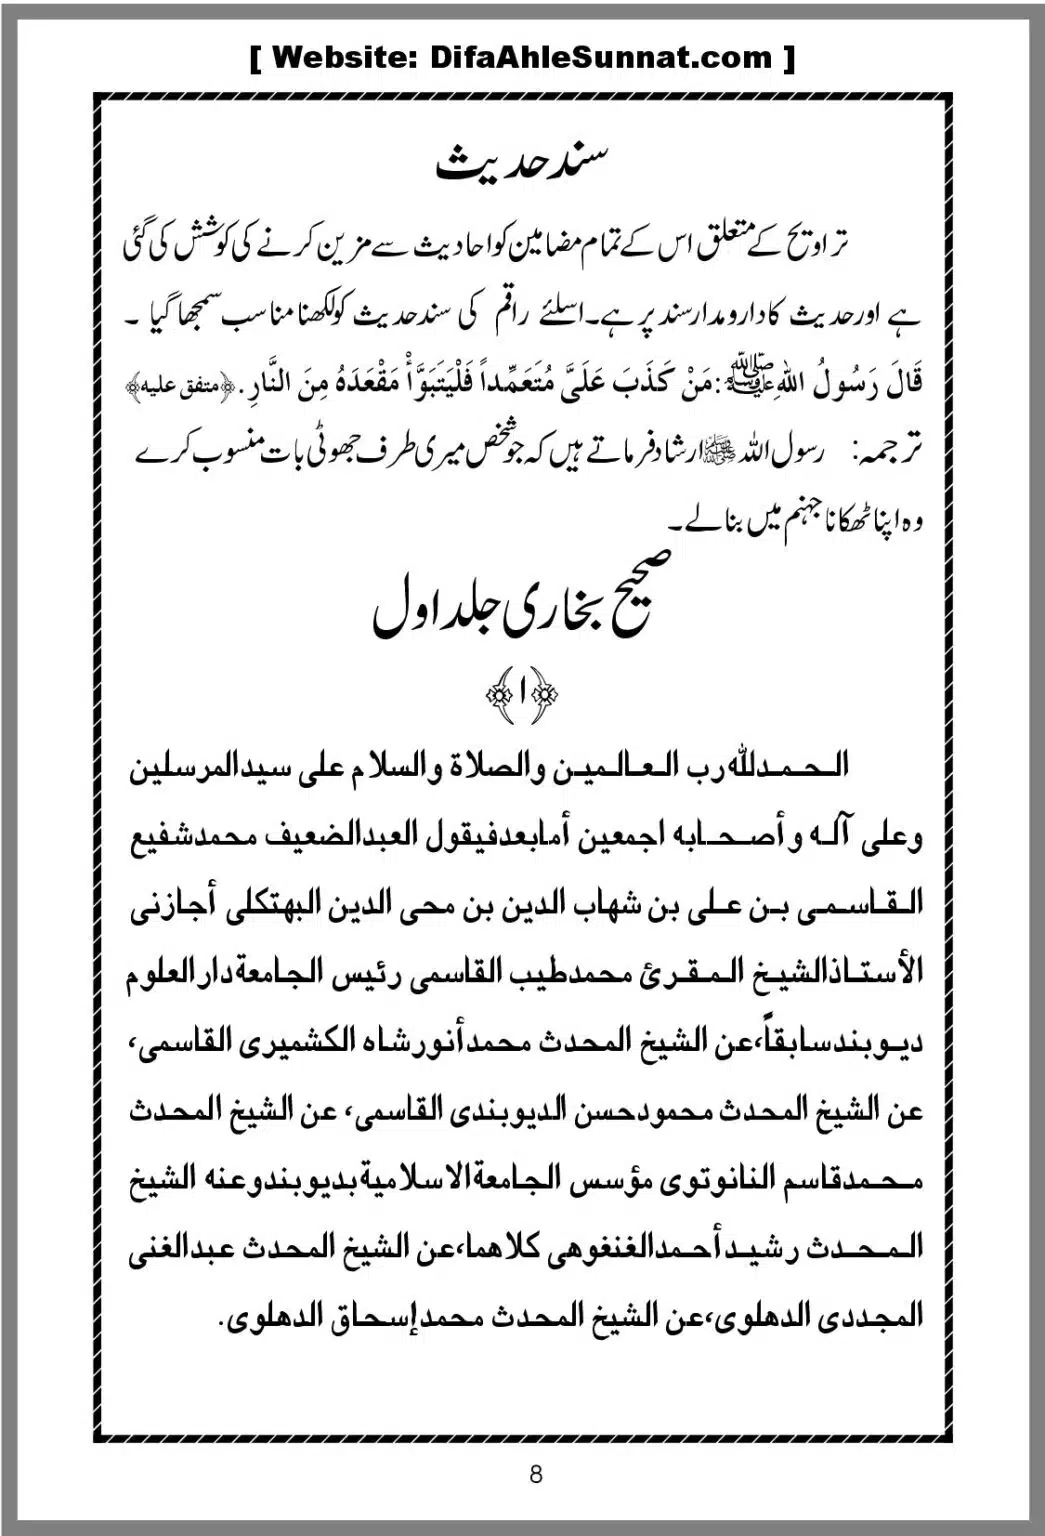 [ Website: DifaAhleSunnat.com ]
سند حدیث
تراویح کے متعلق اس کے تمام مضامین کو احادیث سے مزین کرنے کی کوشش کی گئی
ہے اور حدیث کا دارومدار سند پر ہے۔ اسلئے راقم کی سند حدیث کو لکھنا مناسب سمجھا گیا ۔
قَالَ رَسُولُ اللهِ ﷺ: مَنْ كَذَبَ عَلَىَّ مُتَعَمِّداً فَلْيَتَبَوَّأْ مَقْعَدَهُ مِنَ النَّارِ. ﴿متفق علیه﴾
ترجمہ: رسول اللہ ﷺ ارشاد فرماتے ہیں کہ جو شخص میری طرف جھوٹی بات منسوب کرے
وہ اپنا ٹھکانا جہنم میں بنالے۔
صحیح بخاری جلد اول
﴿۱﴾
الحمدلله رب العالمين والصلاة والسلام على سيدالمرسلين
وعلى آله وأصحابه اجمعين أمابعدفيقول العبدالضعيف محمدشفيع
القاسمى بن على بن شهاب الدين بن محى الدين البهتكلى أجازنى
الأستاذالشيخ المقرئ محمدطيب القاسمى رئيس الجامعةدارالعلوم
ديوبندسابقاً،عن الشيخ المحدث محمدأنورشاه الكشميرى القاسمى،
عن الشيخ المحدث محمودحسن الديوبندى القاسمى، عن الشيخ المحدث
محمدقاسم النانوتوى مؤسس الجامعةالاسلاميةبديوبندوعنه الشيخ
المحدث رشيدأحمدالغنغوهى كلاهما،عن الشيخ المحدث عبدالغنى
المجددى الدهلوى،عن الشيخ المحدث محمدإسحاق الدهلوى.
8